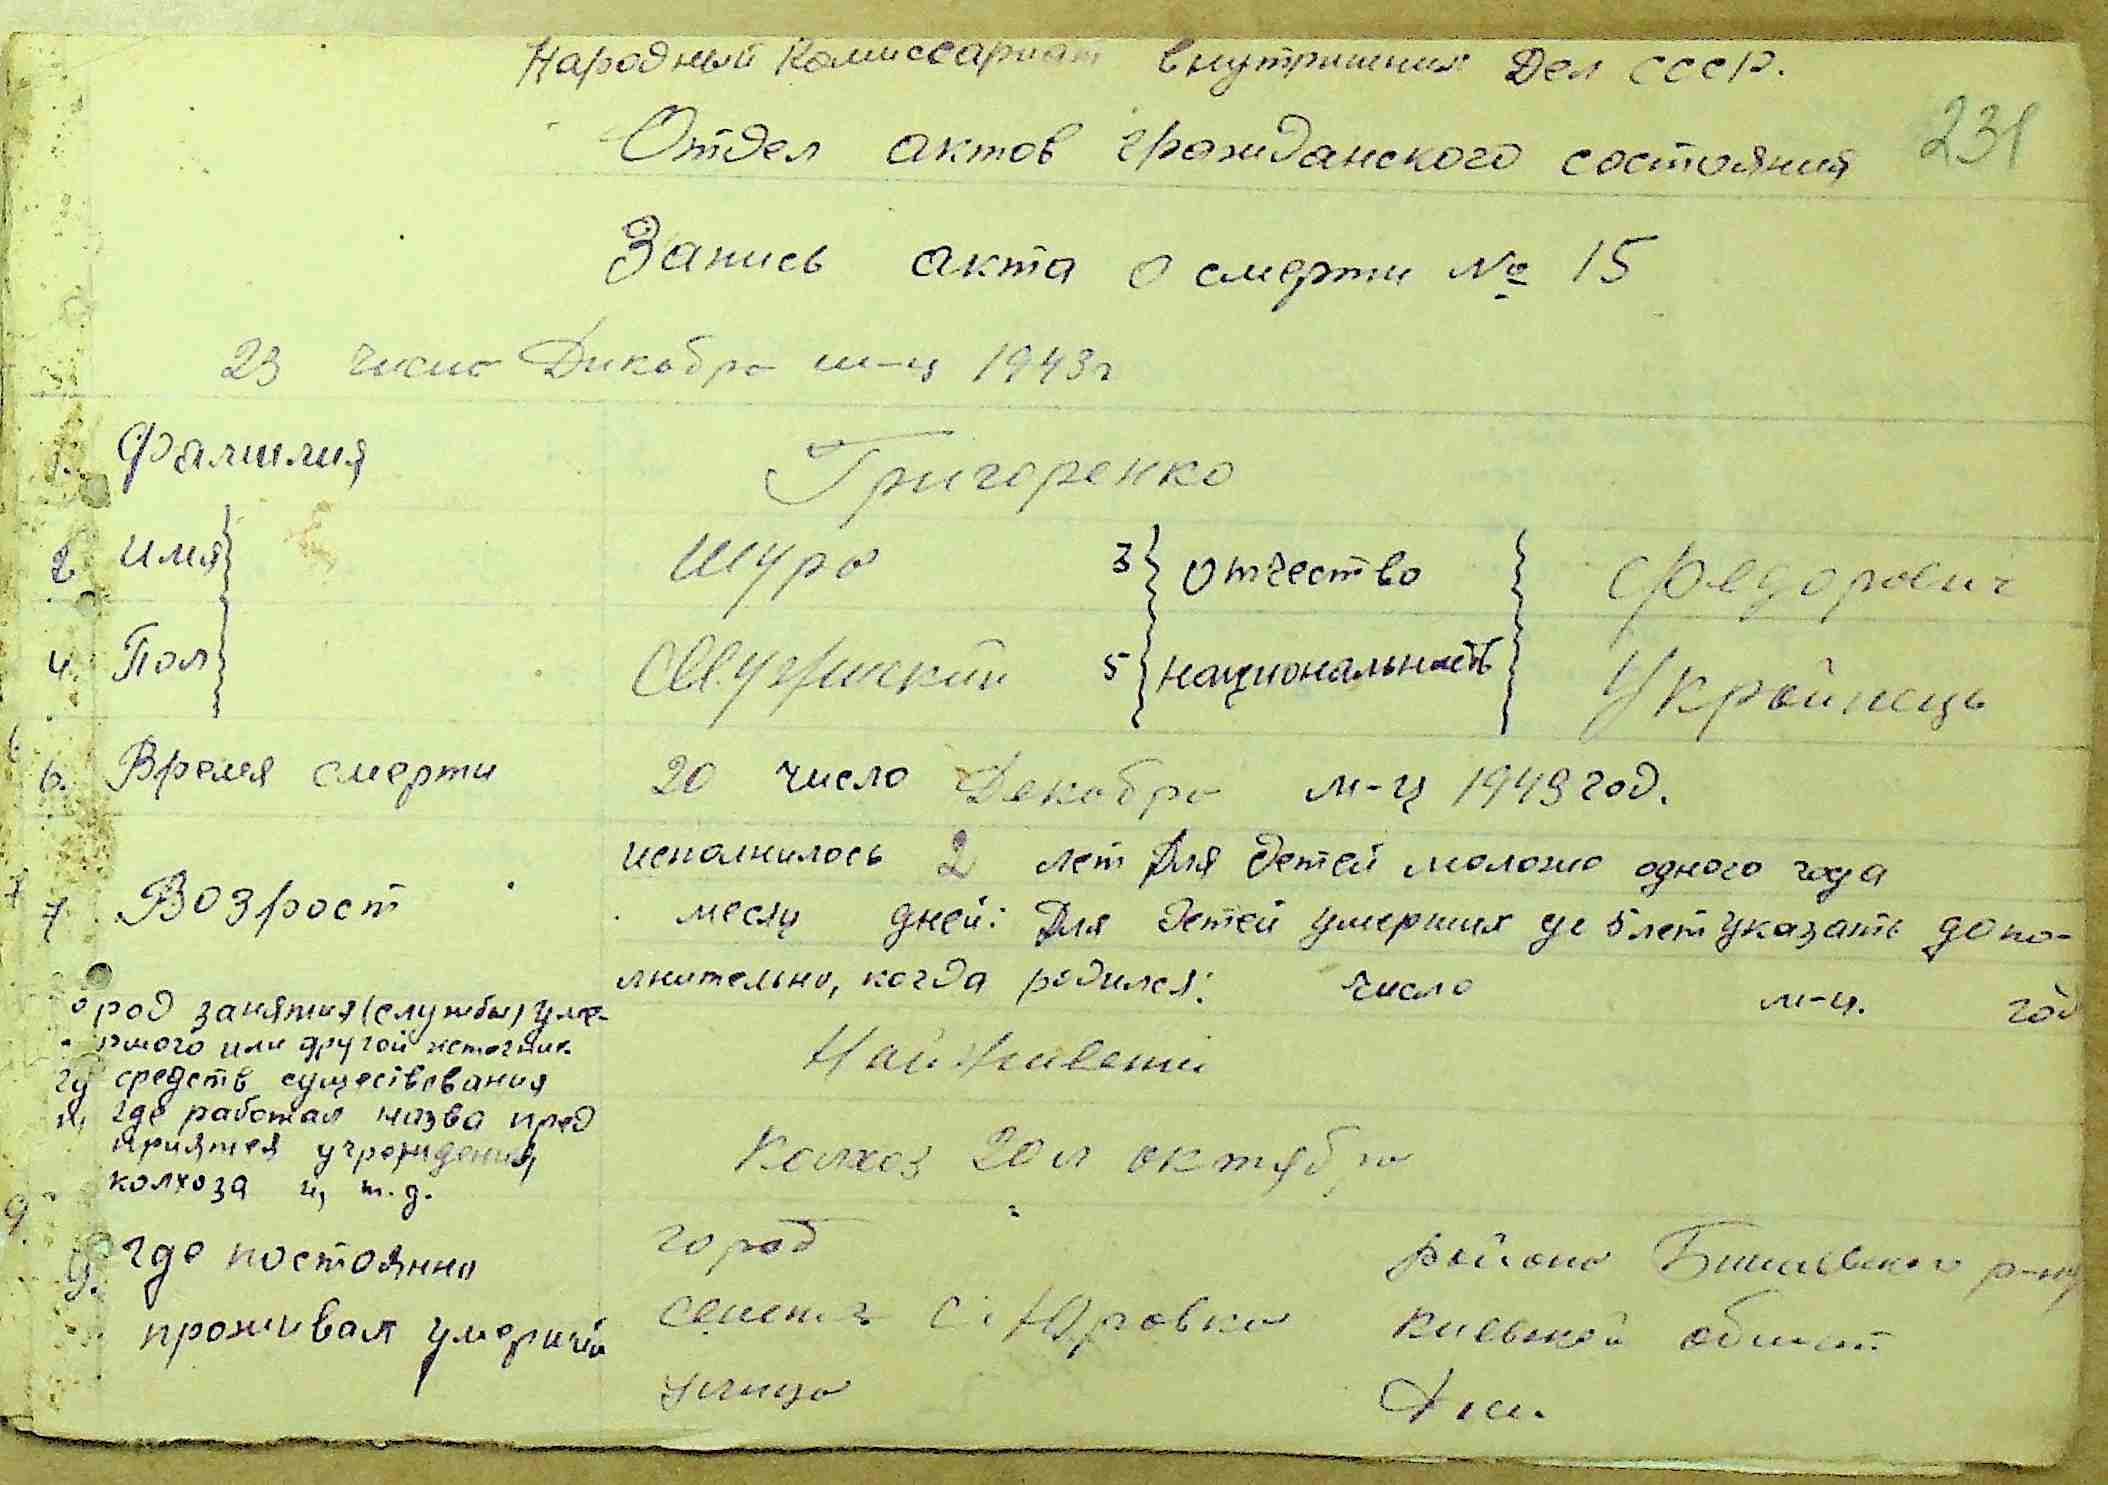 Народный Комиссариат Внутришних Дел СССР.
231
Отдел актов гражданского состояния
Запись акта о смерти № 15
23 число Дикабра м-ц 1943г
1. Фамилия Григоренко
2. имя Шура 3 Отчество Федорович
4. Пол Мужиский 5 национальность Украйнець
6. Время смерти 20 число Декабра м-ц 1943 год.
7. Возрост исполнилось 2 лет Для детей моложе одного года
месяц дней: Для детей умерших до 5 лет указать допо-
лнительно, когда родился: число м-ц. год
род занятия (службы) уме-
ршого или другой источник
средств существования
где работал назва пред
приятея учреждения,
колхоза и, т.д.
На иживении
Колхоз 20 л октября
9. где постоянно
проживал умерший
город района р-ну
С. Юровка Киевской област
улица Дом.